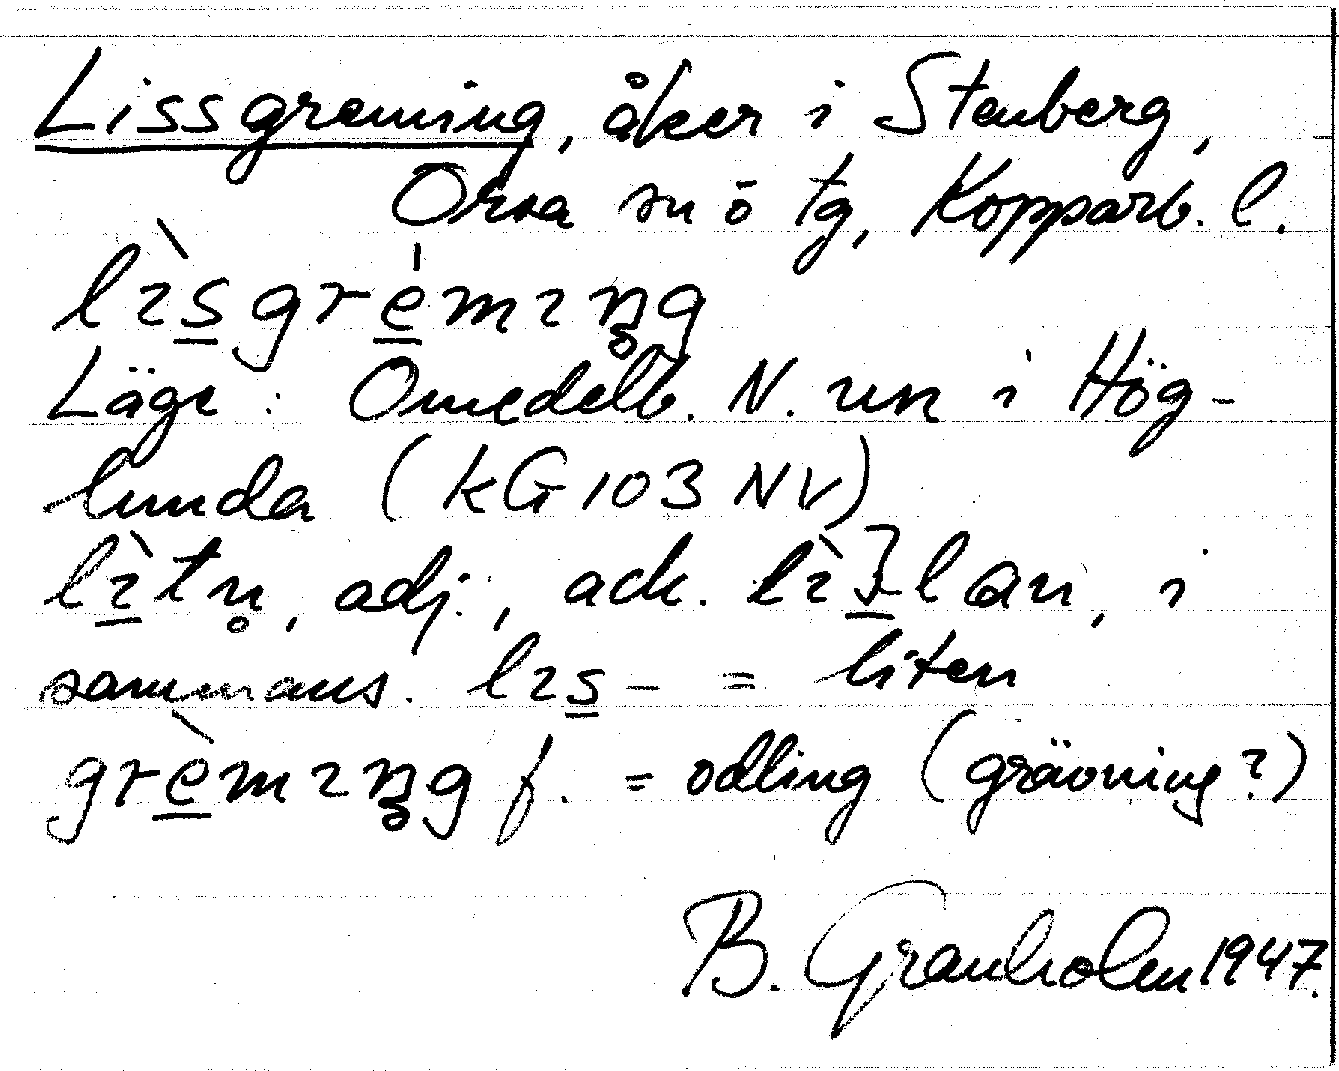 Lissgremning, åker i Stenberg,
Orsa sn ö tg, Kopparb. l.
lìsgrémıŋg
Läge: Omedelb. N. om i Hög-
lunda (kG 103 NV)
lìtn̥, adj., ack. lan, i
sammans. lıs- = liten
grèmıŋg f. = odling (grävning?)
B. Granholm 1947.